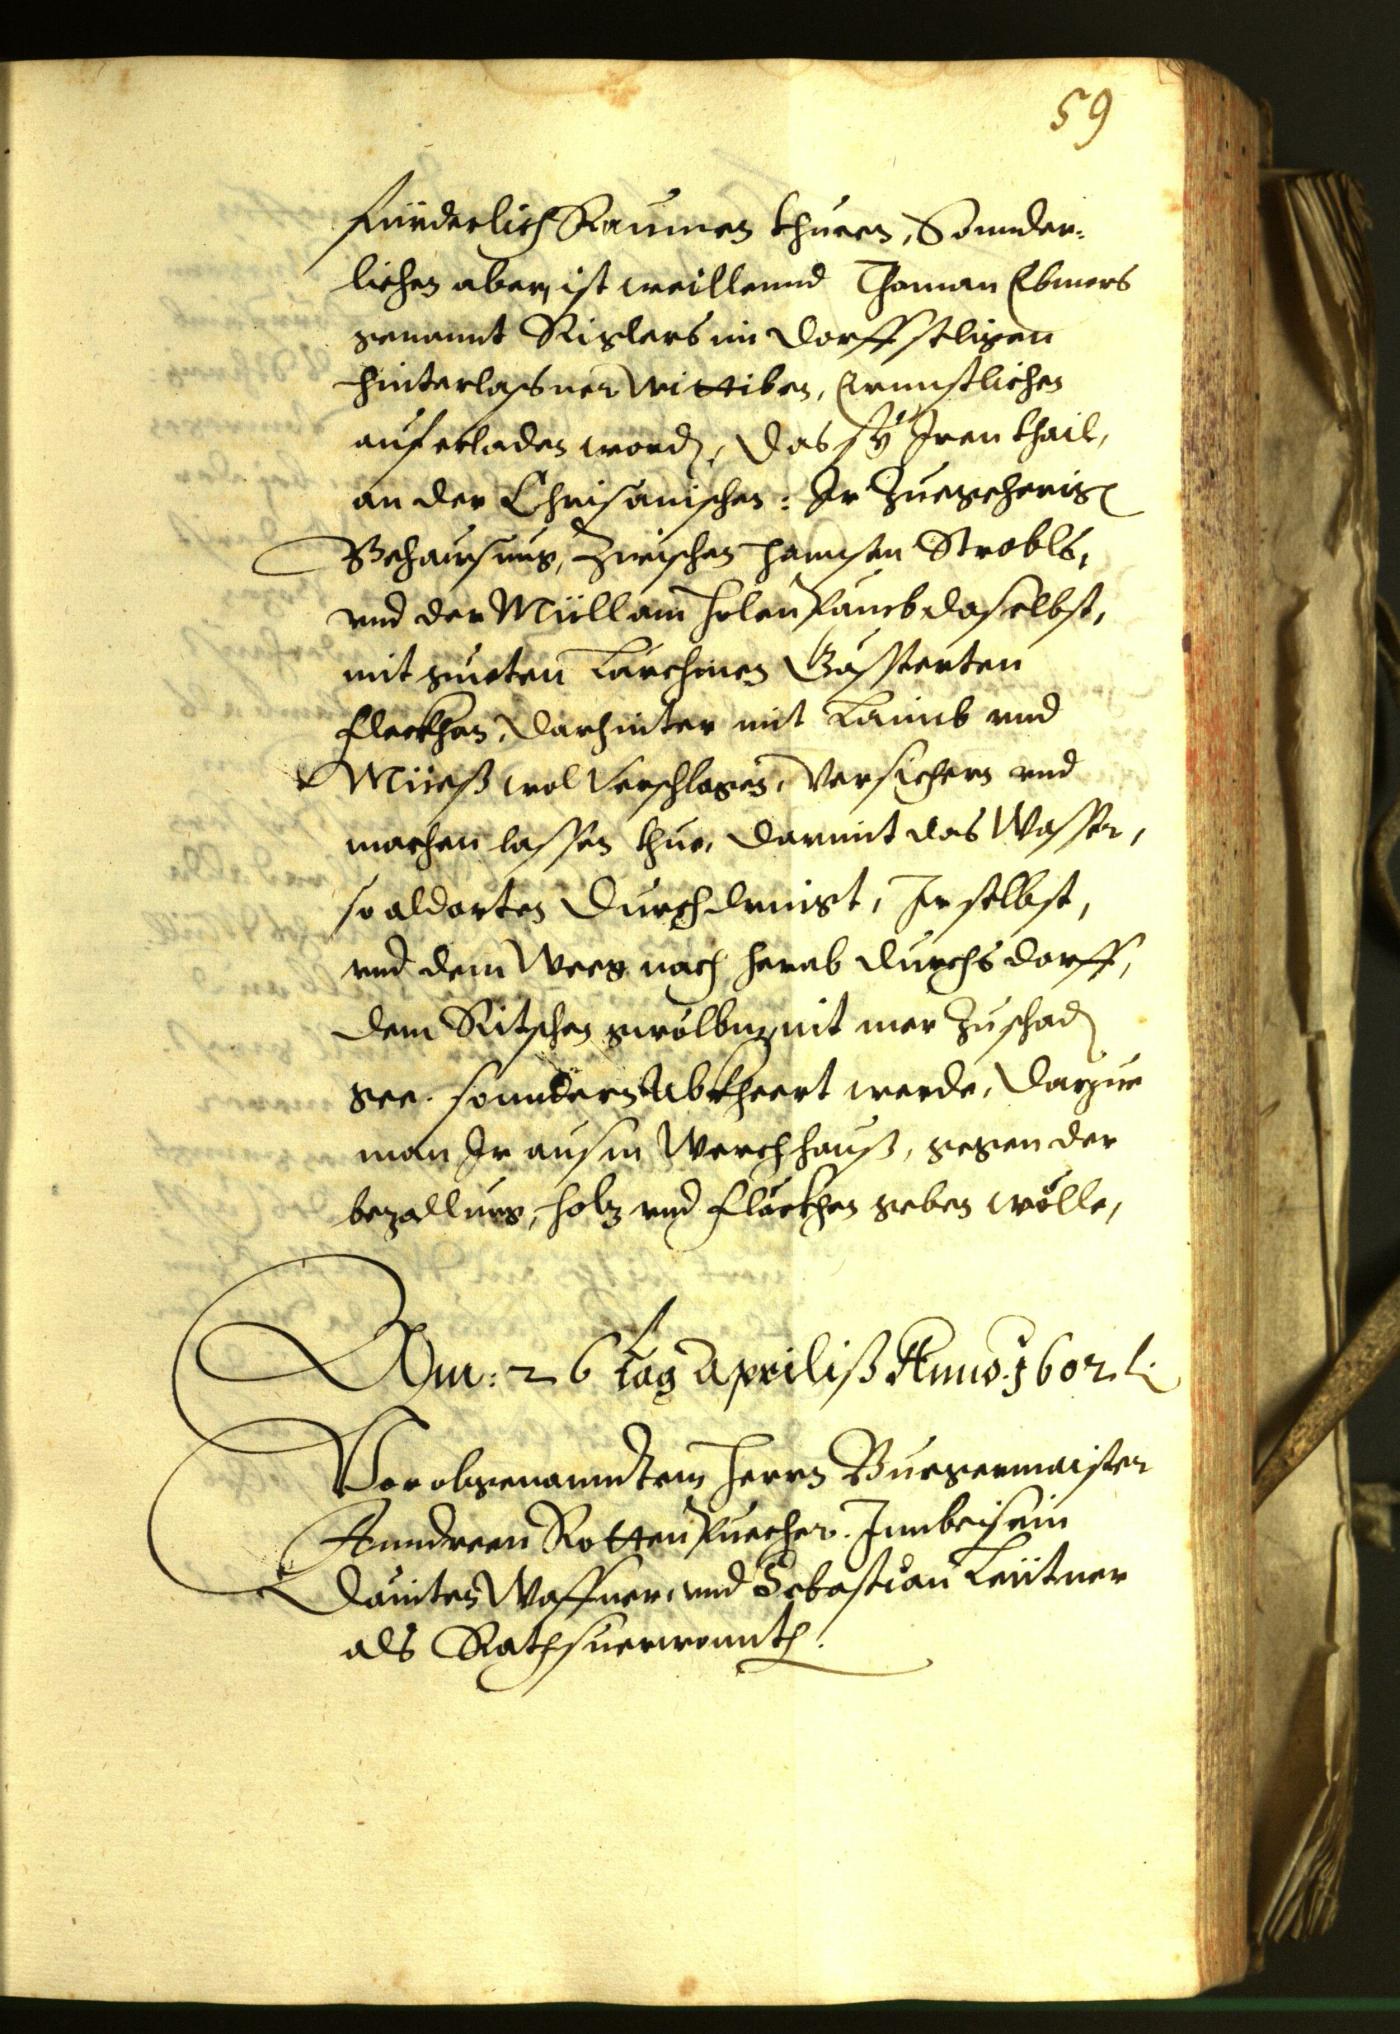 59
fürderlich Raumen thuen, Sonnder¬
lichen aber, ist weillennd Thoman Ebmers
genannt Riglers im Dorff seligen
hinterlasner Wittiben, Ernnstlichen
auferladen word, das sÿ Iren thail,
an der Chrisanischen: Ir Zuegeherig
Behausung, Zwischen Hannsen Strobls,
vnd der Müll am holen Paumb daselbst,
mit gueten Lärchenen Gässterten
fleckhen, darhinter mit Laimb vnd
Müeß wol verschlagen, versichern vnd
machen lassen thue, darmit das Wasser,
so aldorten durchdringt, Ir selbst,
vnd dem Weeg nach herab durchs dorff,
dem Ritschen gwölbm nit mer zu schad
gee. sonndern Abkheert werde, darzue
man Ir ausm Werchhauß, gegen der
bezallung, holz vnd fleckhen geben wölle,
Am: 26 tag Apriliß Anno. 1602.
Vor obgenanndtem Herrn Burgermaister
Anndreen Rottenpuecher. Inn beisein
Dauiten Waffner, vnd Sebastian Leütner
als Rathsuerwonnth.